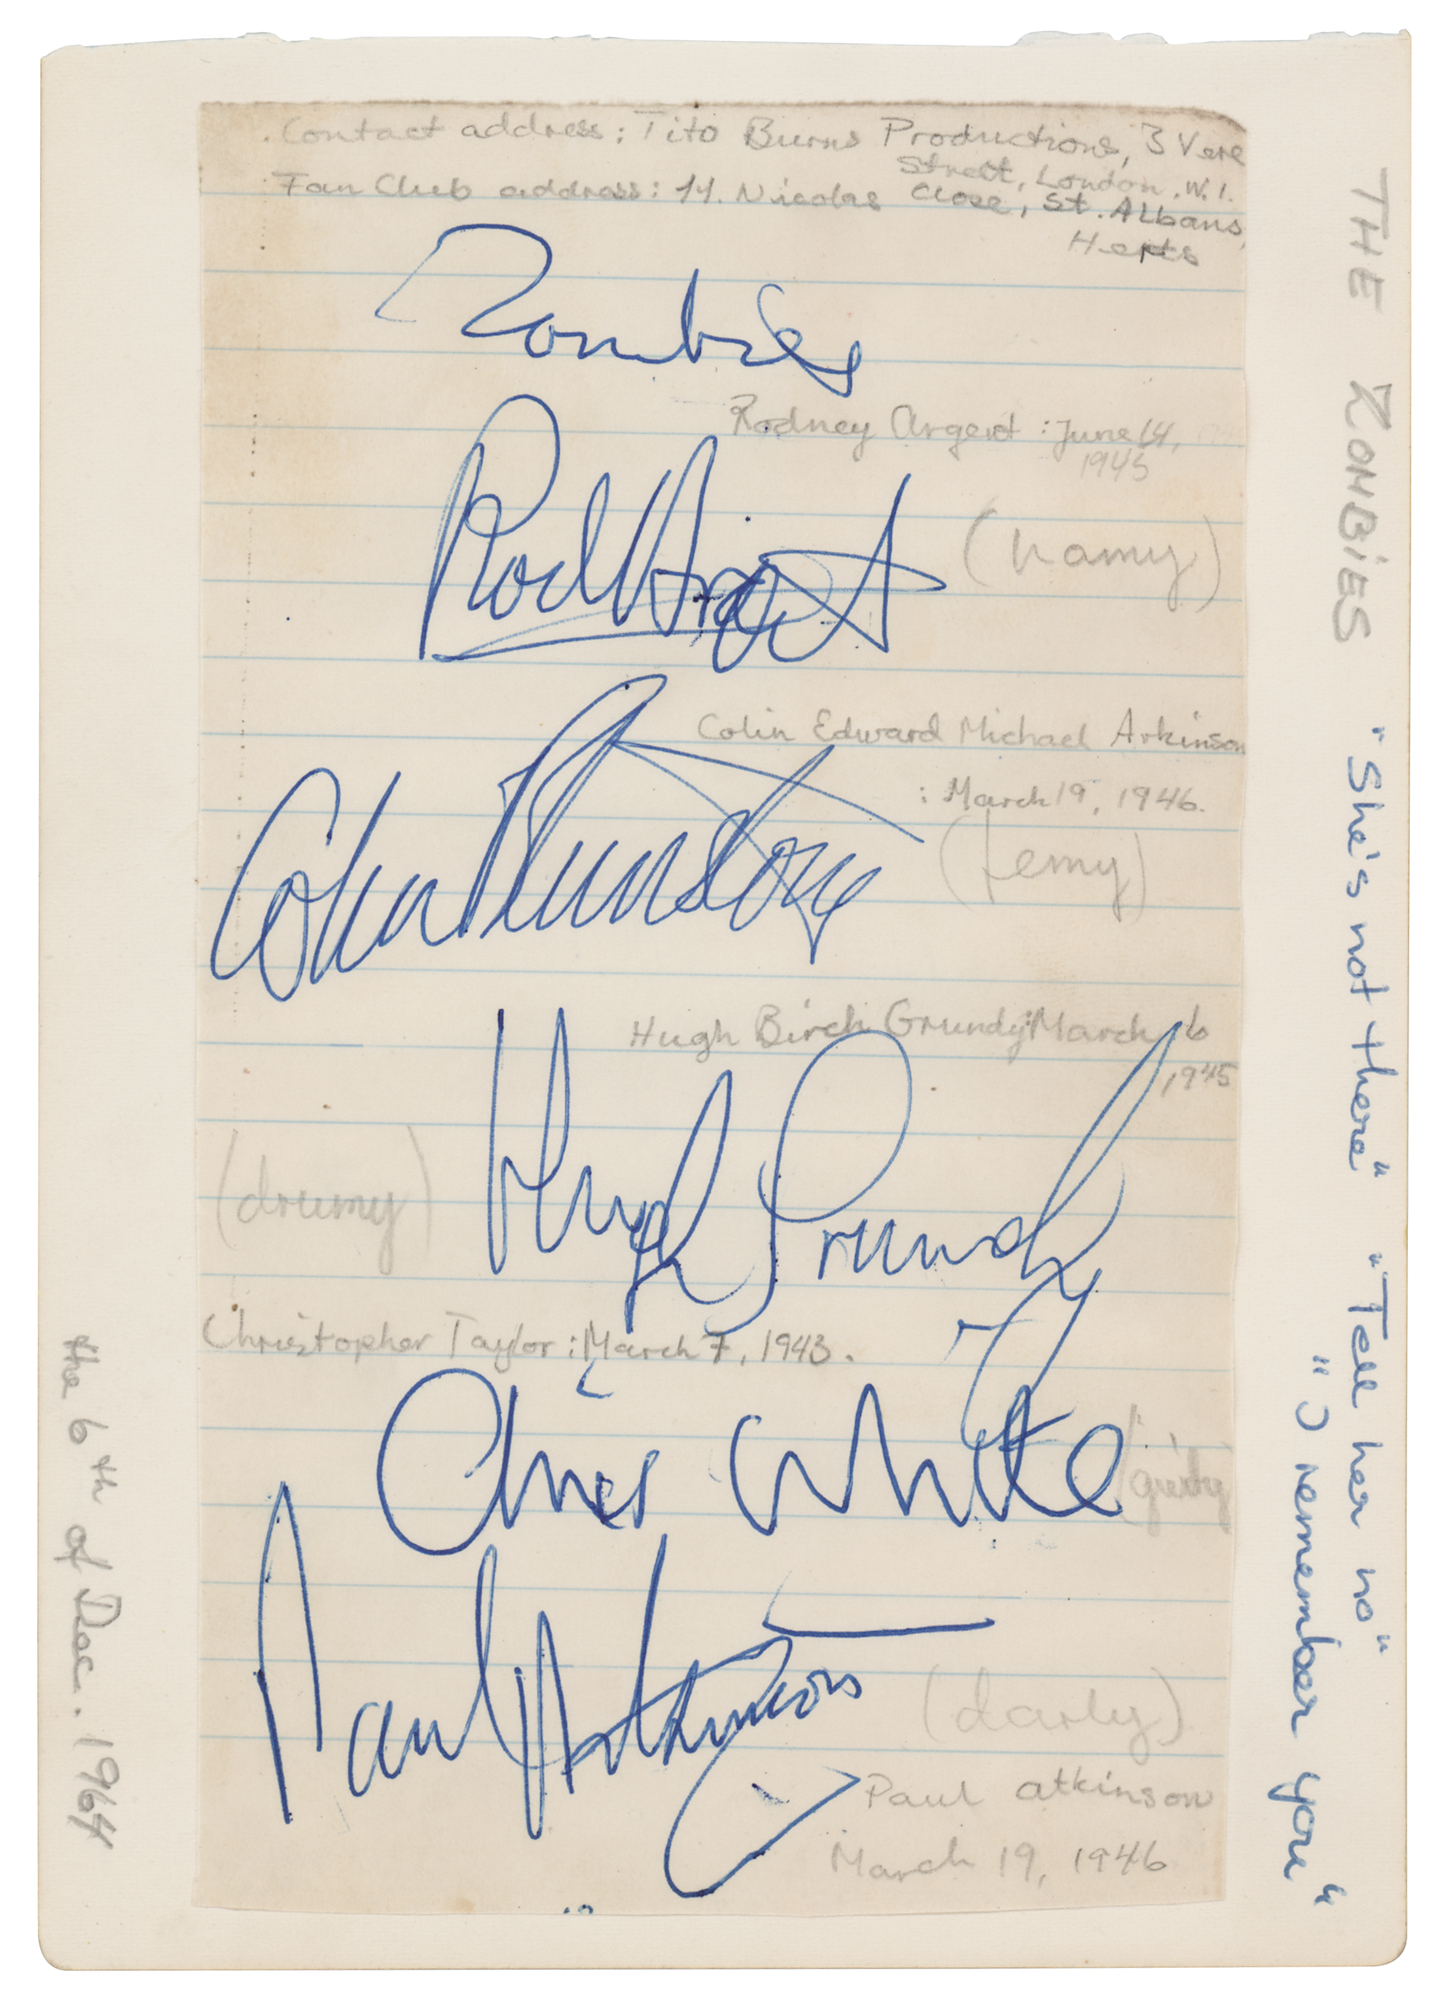 Contact address: Tito Burns Productions, 3 Vere
Street, London. W.1.
Fan Club address: 14. Nicolas Close, St. Albans,
Herts
Zombies
Rodney Argent : June 14,
1945
Rod Argent
(namy)
Colin Edward Michael Arkinson
: March 19, 1946.
Colin Blunstone
(temy)
Hugh Birch Grundy: March 6
, 1945
Hugh Grundy
(drumy)
Christopher Taylor : March 7, 1943.
Chris White
Paul Atkinson
(darly)
Paul atkinson
March 19, 1946
THE ZOMBiES
"She's not there" "Tell her no"
"I remember you"
the 6th of Dec. 1964